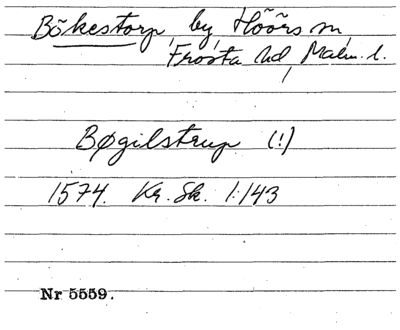 Bökestorp, by, Höörs sn,
Frosta hd, Malm. l.
Bøgilstrup (!)
1574. Kr. Sk. 1:143
Nr 5559.